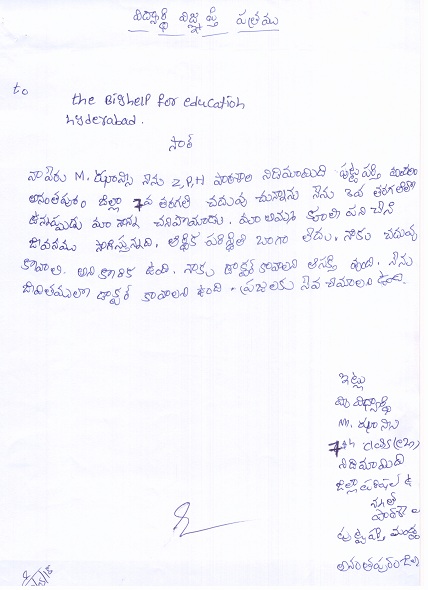 విద్యార్థి విజ్ఞప్తి పత్రము
to
the Bighelp for education
hyderabad.
సార్
నా పేరు M. ఝాన్సి నేను Z,P,H పాఠశాల నిడిమామిడి పుట్టపర్తి మండలం
అనంతపురం జిల్లా 7వ తరగతి చదువు చున్నాను నేను 3వ తరగతిలో
ఉన్నప్పుడు మా నాన్న చనిపోయాడు. మా అమ్మ కూలీ పని చేసి
జీవనము సాగిస్తున్నది, ఆర్థిక పరిస్థితి బాగా లేదు, నాకు చదువు
కావాలి. అని కోరిక ఉంది. నాకు డాక్టర్ కావాలని ఆసక్తి వుంది. నేను
జీవితములో డాక్టర్ కావాలని ఉంది - ప్రజలకు సేవ చేయాలని ఉంది.
ఇట్లు
మీ విద్యార్థి
M. ఝాన్సి
7th class (em)
నిడిమామిడి
జిల్లా పరిషత్
పాఠశాల
పుట్టపర్తి మండలం
అనంతపురం జిల్లా